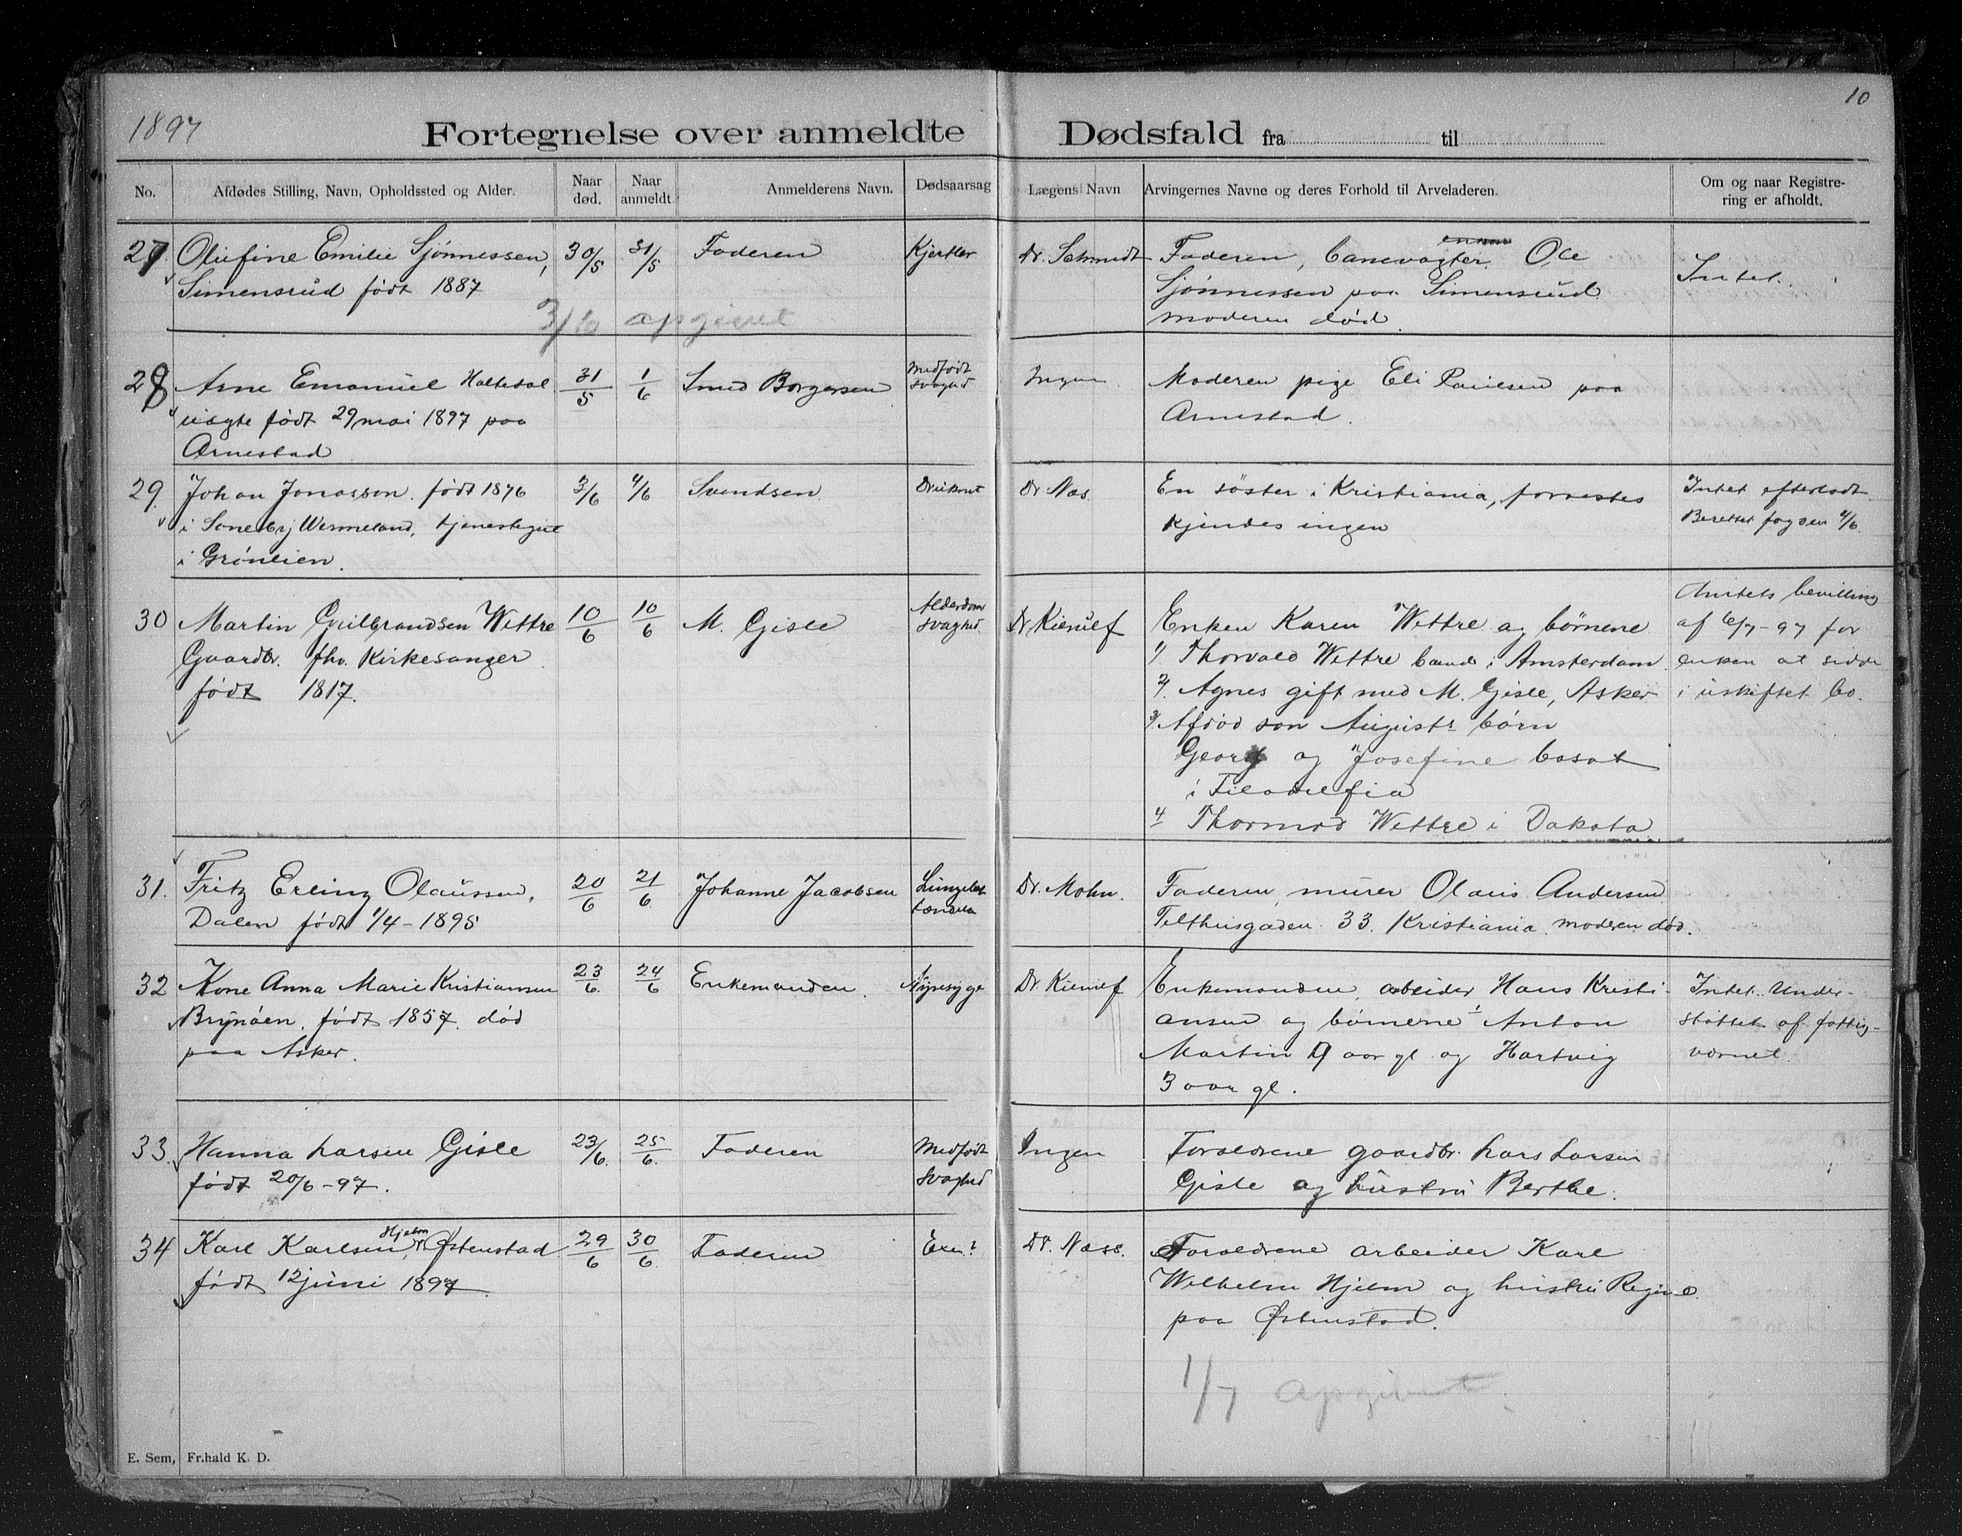 1897
10
Fortegnelse over anmeldte Dødsfald fra til
No. Afdødes Stilling, Navn, Opholdssted og Alder. Naar død. Naar anmeldt. Anmelderens Navn. Dødsaarsag Lægens Navn Arvingernes Navne og deres Forhold til Arveladeren. Om og naar Registrering er afholdt.
27 Olufine Emilie Sjønnessen, 30/5 31/5 Faderen Kjertler Dr. Schmidt Faderen, banevogter Ole Intet.
Simensrud født 1887 Sjønnessen paa Simensrud
moderen død.
3/6 opgivet
28 Arne Emanuel Haltedal 31/5 1/6 Smed Borgersen Medfødt svaghed Ingen Moderen pige Eli Paulsen paa
uægte født 29 mai 1897 paa Arnestad.
Arnestad
29. Johan Jonasson. født 1876 3/6 4/6 Svendsen. Druknet Dr Næs. En søster i Kristiania, forøvrigt Intet efterladt
i Sonebyj Wermeland, tjenestegut kjendes ingen Berettet fogden 4/6
i Grønlien.
30 Martin Gulbrandsen Wettre 10/6 10/6 M. Gisle Alderdom svaghed. Dr Kierulf Enken Karen Wettre og børnene Amtets bevilling
Gaardbr. fhv. Kirkesanger 1/ Thorvald Wettre bænd i Amsterdam. af 6/7-97 for
født 1817. 2/. Agnes gift med M. Gisle, Asker enken at sidde
3/ Afdød søn Augusts børn i uskiftet bo.
Georg og Josefine bosat
i Filadelfia
4 Thormod Wettre i Dakota
31. Fritz Erling Olaussen, 20/6 21/6. Johanne Jacobsen Dr. Mohn. Faderen, murer Olaus Andersen
Dalen født 1/4-1895 Telthusgaden 33. Kristiania. moderen død.
32 Kone Anna Marie Kristiansen 23/6. 24/6 Enkemanden. Nyresyge Dr. Kierulf Enkemanden, arbeider Hans Kristi- Intet. Under-
Brynåen. født 1857. død ansen og børnene Anton støttet af fattig-
paa Asker. Martin 9 aar gl. og Hartvig værnet.
3 aar gl.
33. Hanna Larsen Gisle 23/6. 25/6. Faderen Medfødt svaghed Ingen Forældrene gaardbr. Lars Larsen
født 20/6-97. Gisle og hustru Berthe.
34 Karl Karlsen Hjelm Østenstad 29/6 30/6. Faderen Dr. Næss. Forældrene arbeider Karl
født 12 juni 1897. Wilhelm Hjelm og hustru Regine
paa Østenstad.
1/7 opgivet.
E. Sem, Fr.hald K. D.